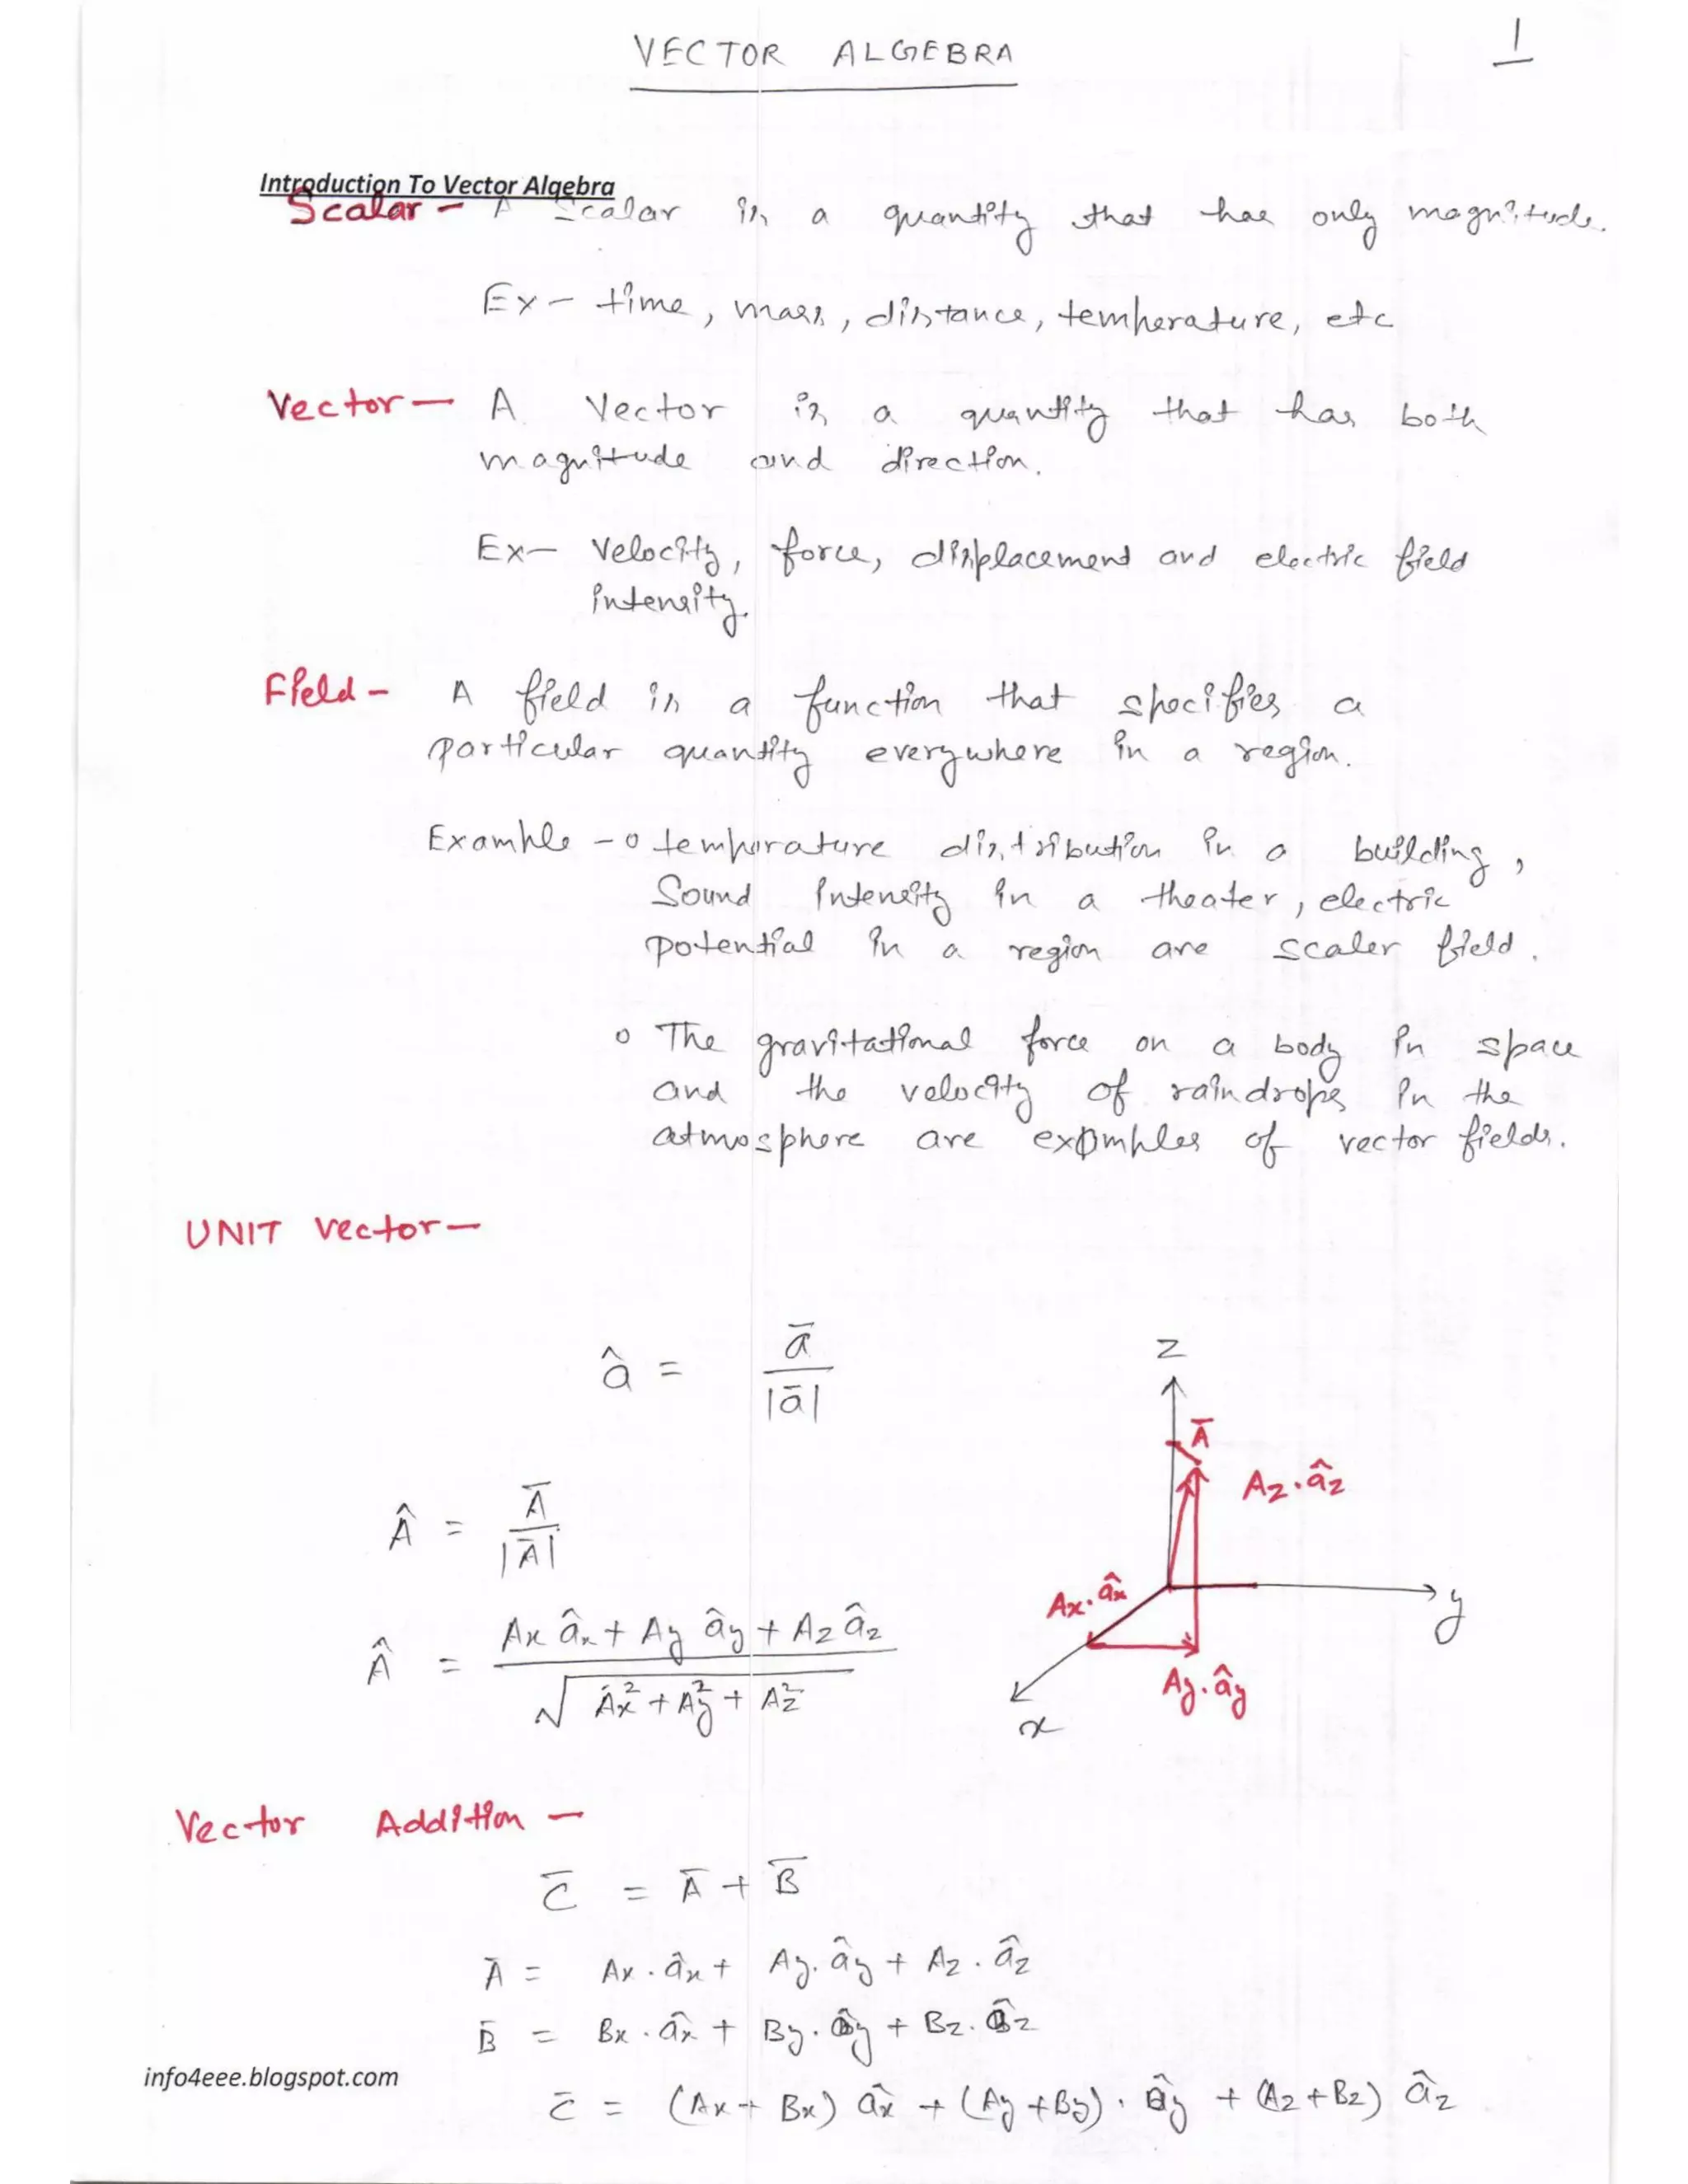 VECTOR ALGEBRA
1
Introduction To Vector Algebra
Scalar - A Scalar is a quantity that has only magnitude.
Ex - time, mass, distance, temperature, etc
Vector - A Vector is a quantity that has both
magnitude and direction.
Ex - Velocity, force, displacement and electric field
intensity.
Field - A field is a function that specifies a
particular quantity everywhere in a region.
Example - o temperature distribution in a building,
Sound Intensity in a theater, electric
potential in a region are scaler field.
o The gravitational force on a body in space
and the velocity of raindrops in the
atmosphere are examples of vector fields.
UNIT Vector -
â = ā / |ā|
Â = Ā / |Ā|
Â = Ax âx + Ay ây + Az âz / √ Ax² + Ay² + Az²
z
Ā
Az.âz
Ax.âx
y
Ay.ây
x
Vector Addition -
C̄ = Ā + B̄
Ā = Ax . âx + Ay. ây + Az . âz
B̄ = Bx . âx + By . ây + Bz. âz
C̄ = (Ax + Bx) âx + (Ay + By) . ây + (Az + Bz) âz
info4eee.blogspot.com